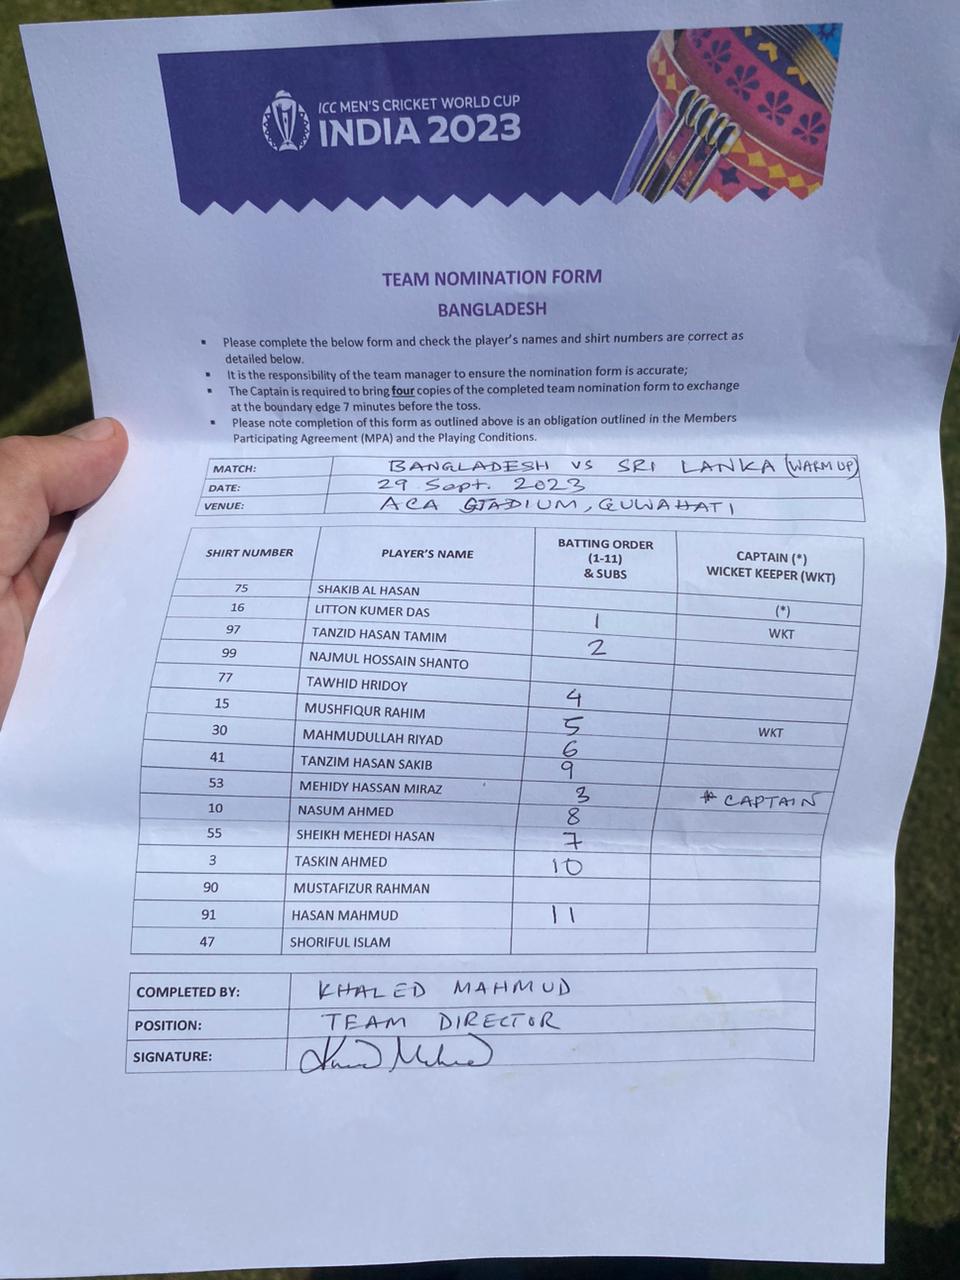 ICC MEN'S CRICKET WORLD CUP
INDIA 2023
TEAM NOMINATION FORM
BANGLADESH
▪ Please complete the below form and check the player's names and shirt numbers are correct as
detailed below.
▪ It is the responsibility of the team manager to ensure the nomination form is accurate;
▪ The Captain is required to bring four copies of the completed team nomination form to exchange
at the boundary edge 7 minutes before the toss.
▪ Please note completion of this form as outlined above is an obligation outlined in the Members
Participating Agreement (MPA) and the Playing Conditions.
MATCH: BANGLADESH VS SRI LANKA (WARM UP)
DATE: 29 Sept. 2023
VENUE: ACA STADIUM, GUWAHATI
SHIRT NUMBER PLAYER'S NAME BATTING ORDER (1-11) & SUBS CAPTAIN (*) WICKET KEEPER (WKT)
75 SHAKIB AL HASAN (*)
16 LITTON KUMER DAS 1 WKT
97 TANZID HASAN TAMIM 2
99 NAJMUL HOSSAIN SHANTO
77 TAWHID HRIDOY 4
15 MUSHFIQUR RAHIM 5 WKT
30 MAHMUDULLAH RIYAD 6
41 TANZIM HASAN SAKIB 9
53 MEHIDY HASSAN MIRAZ 3 * CAPTAIN
10 NASUM AHMED 8
55 SHEIKH MEHEDI HASAN 7
3 TASKIN AHMED 10
90 MUSTAFIZUR RAHMAN
91 HASAN MAHMUD 11
47 SHORIFUL ISLAM
COMPLETED BY: KHALED MAHMUD
POSITION: TEAM DIRECTOR
SIGNATURE: